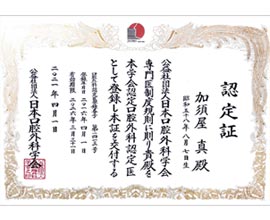 認定証
加須屋 真 殿
昭和五十八年八月七日生
公益社団法人日本口腔外科学会
専門医制度規則に則り貴殿を
本学会認定口腔外科認定医
として登録し本証を交付する
二〇二一年 四月一日
公益社団法人日本口腔外科学会